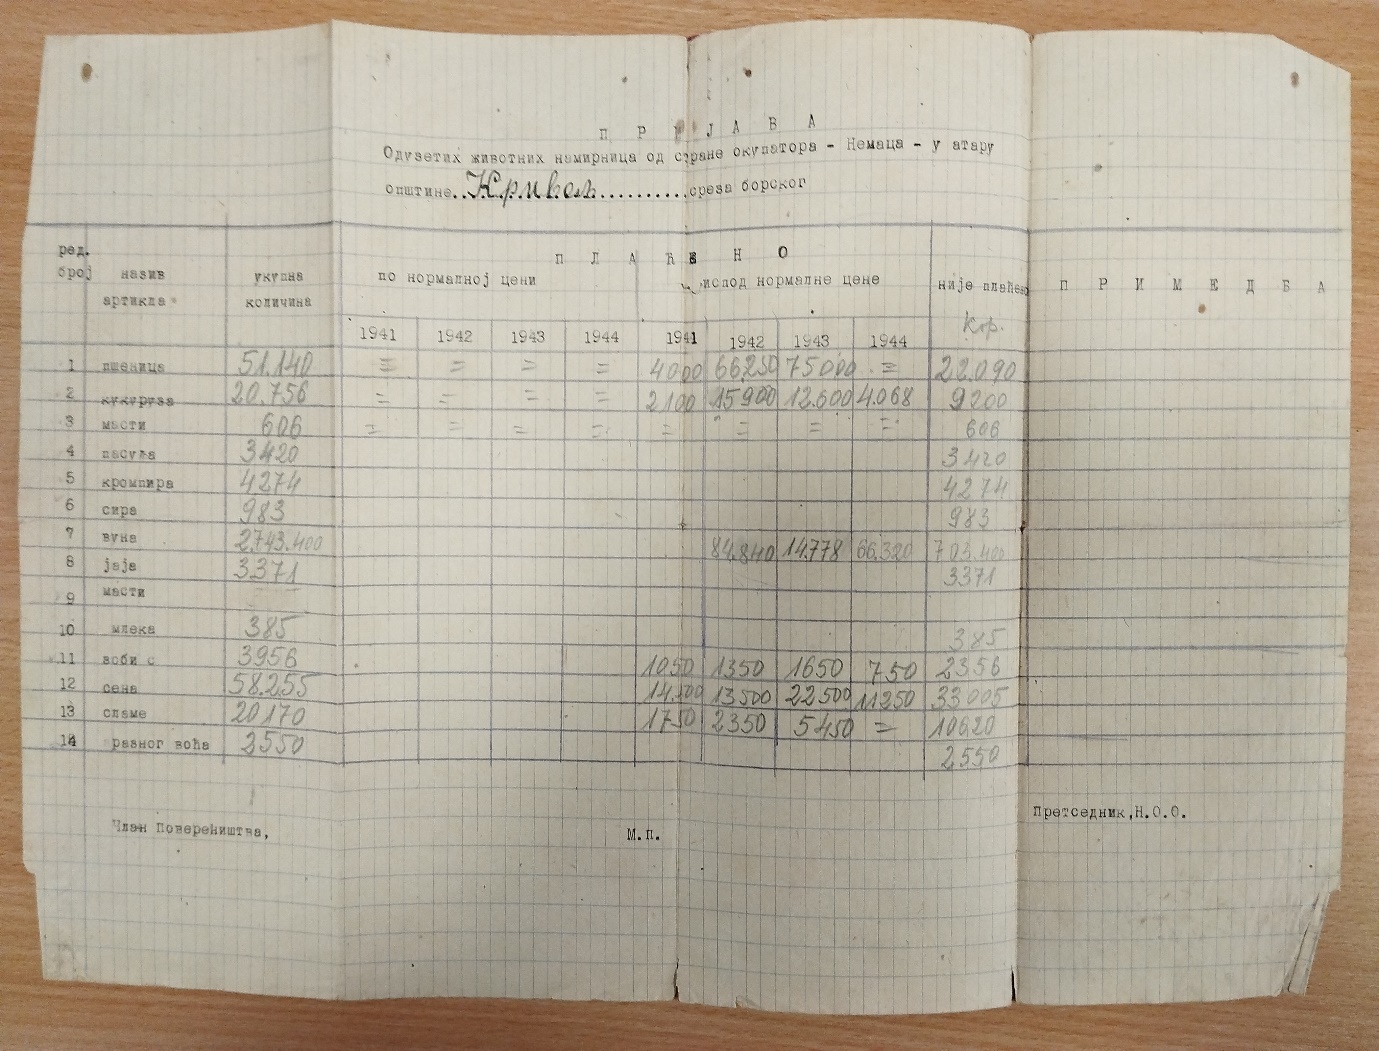 П Р И Ј А В А
Одузетих животних намирница од стране окупатора - Немаца - у атару
општине..Кривељ..........среза борског
ред. број назив артикла укупна количина П Л А Ћ Е Н О није плаћено П Р И М Е Д Б А
по нормалној цени испод нормалне цене Кгр.
1941 1942 1943 1944 1941 1942 1943 1944
1 пшеница 51.140 = = = = 4000 66250 75000 = 22.090
2 кукуруза 20.756 = = = = 2100 15900 12.600 4.068 9200
3 масти 606 = = = = = = = = 606
4 пасуља 3420 3420
5 кромпира 4274 4274
6 сира 983 983
7 вуна 2.743.400 84.840 14.778 66.320 703.400
8 јаја 3371 3371
9 масти
10 млека 385 385
11 зоби с 3956 1050 1350 1650 750 2356
12 сена 58.255 14.500 13500 22500 11250 33005
13 сламе 20170 1750 2350 5450 = 10620
14 разног воћа 2550 2550
Члан Поверeништва, М.П. Претседник,Н.О.О.